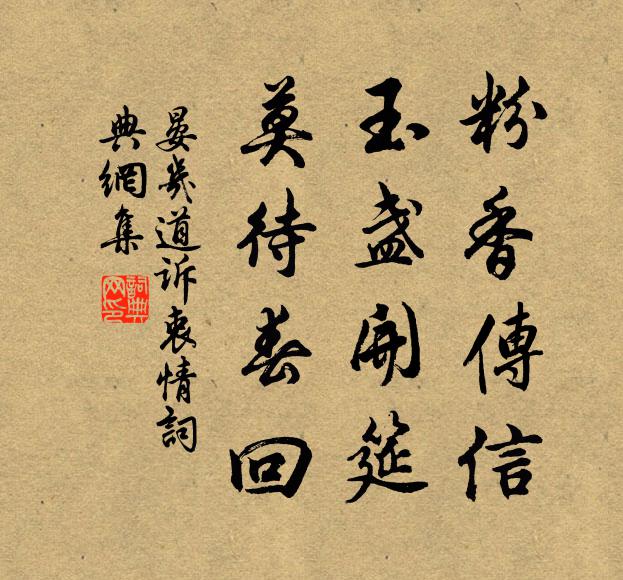 粉香傳信
玉盞開筵
莫待春回
晏幾道訴衷情詞
典網集
詞典
网印